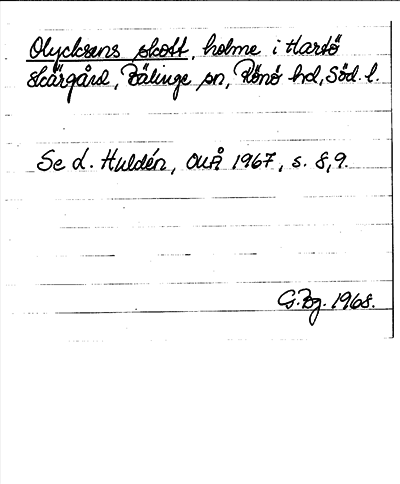 Olycksens skott, holme i Hartsö
skärgård, Bälinge sn, Rönö hd, Söd. l.
Se L. Huldén, OUÅ 1967, s. 8,9.
G.Bg. 1968.